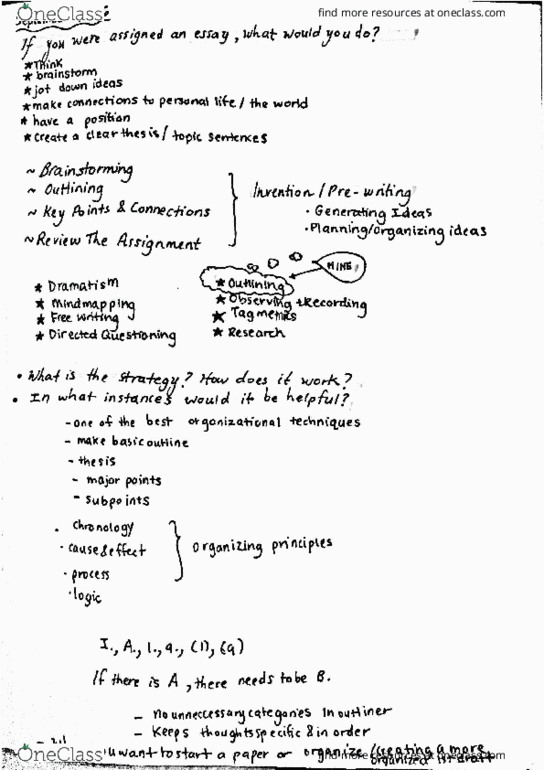 OneClass
find more resources at oneclass.com
September
If you were assigned an essay, what would you do?
★Think
★ brainstorm
★ jot down ideas
★ make connections to personal life / the world
★ have a position
★ create a clear thesis / topic sentences
~ Brainstorming
~ Outlining
~ Key Points & Connections
~ Review The Assignment
Invention / Pre-writing
• Generating Ideas
• Planning/organizing ideas
MINE
★ Dramatism
★ Mindmapping
★ Free writing
★ Directed Questioning
★ Outlining
★ Observing + Recording
★ Tagmemics
★ Research
• What is the strategy? How does it work?
• In what instances would it be helpful?
- one of the best organizational techniques
- make basic outline
- thesis
- major points
- subpoints
• chronology
• cause & effect
• process
• logic
organizing principles
I., A., 1., a., (1), (a)
If there is A, there needs to be B.
- no unneccessary categories in outliner
- Keeps thoughts specific & in order
u want to start a paper or organize / creating a more
organized 1st draft
OneClass
find more resources at oneclass.com